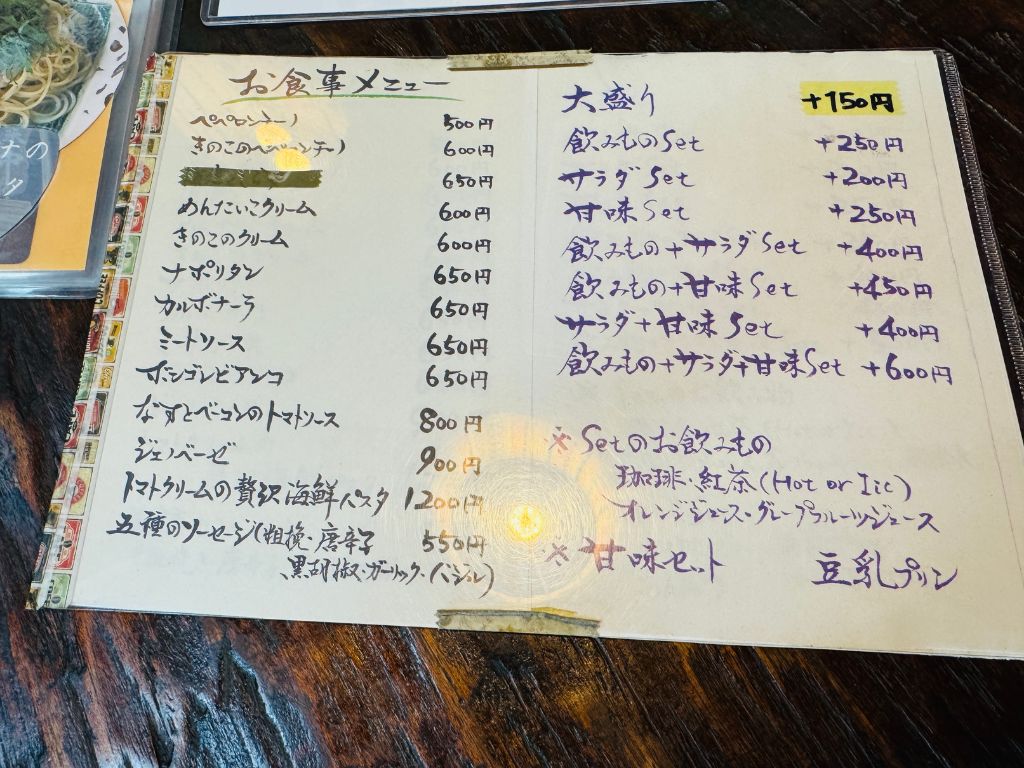 お食事メニュー
ペペロンチーノ 500円
きのこのペペロンチーノ 600円
650円
めんたいこクリーム 600円
きのこのクリーム 600円
ナポリタン 650円
カルボナーラ 650円
ミートソース 650円
ボンゴレビアンコ 650円
なすとベーコンのトマトソース 800円
ジェノベーゼ 900円
トマトクリームの贅沢海鮮パスタ 1200円
五種のソーセージ(粗挽・唐辛子 550円
黒胡椒・ガーリック・バジル)
大盛り +150円
飲みものSet +250円
サラダSet +200円
甘味Set +250円
飲みもの+サラダSet +400円
飲みもの+甘味Set +450円
サラダ+甘味Set +400円
飲みもの+サラダ+甘味Set +600円
※Setのお飲みもの
珈琲・紅茶(Hot or Ice)
オレンジジュース・グレープフルーツジュース
※甘味セット 豆乳プリン
ナの
タ